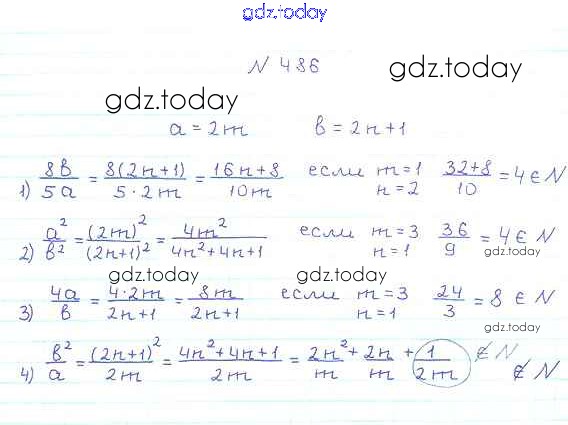 gdz.today
№ 486
gdz.today
gdz.today
a = 2m    b = 2n+1
1) 8b/5a = 8(2n+1)/5·2m = 16n+8/10m если m=1 n=2 32+8/10 = 4 ∈ N
gdz.today
2) a²/b² = (2m)²/(2n+1)² = 4m²/4n²+4n+1 если m=3 n=1 36/9 = 4 ∈ N
gdz.today
gdz.today gdz.today
3) 4a/b = 4·2m/2n+1 = 8m/2n+1 если m=3 n=1 24/3 = 8 ∈ N
gdz.today
4) b²/a = (2n+1)²/2m = 4n²+4n+1/2m = 2n²/m + 2n/m + 1/2m ∉ N
∉ N
gdz.today